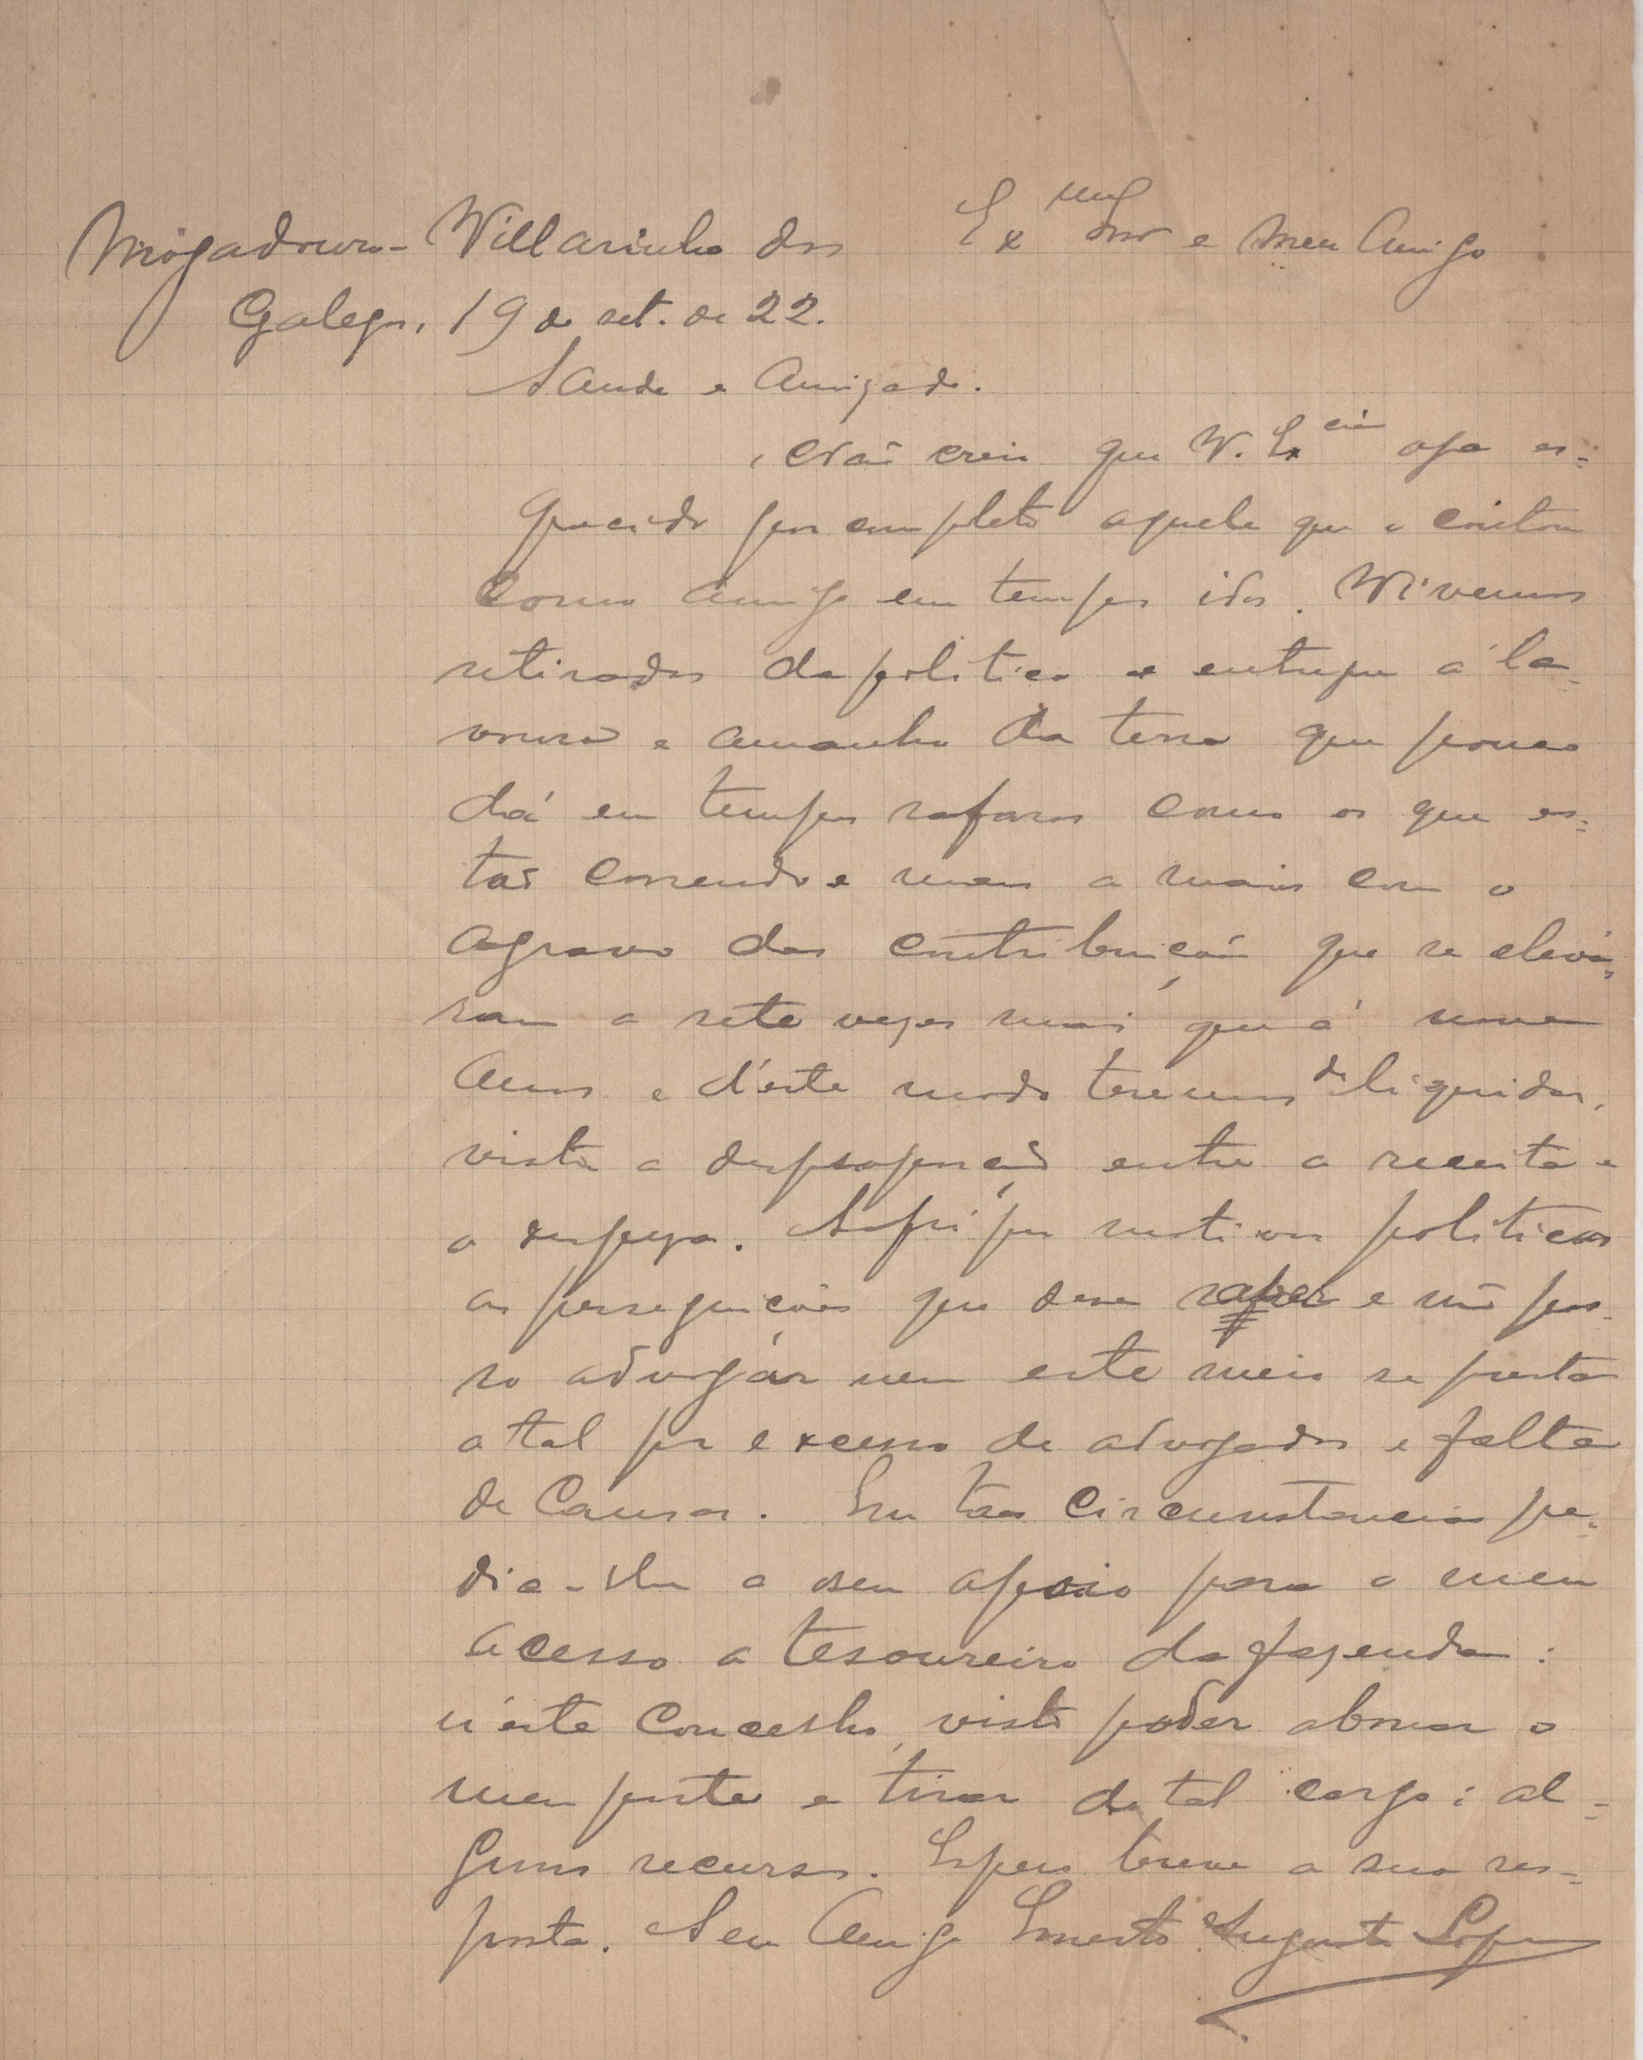 Mogadouro - Villarinho dos Ex.mo Snr e meu Amigo
Galegos, 19 de set. de 22.
Saude e Amizade.
Não creio que V. Excia haja es-
quecido por completo aquele que o contou
como amigo em tempos idos. Vivemos
retirados da politica e entregue á la-
voura e amanho da terra que pouco
dá em tempos como os que es-
tão correndo e mais a mais com o
agravo das contribuições que se eleva-
ram a sete vezes mais que á nove
anos e d'este modo teremos de liquidar,
visto a desproporção entre a receita e
a despeza. Sofri por motivos politicos
as perseguições que deve saber e não pos-
so advogár nem este meio se presta
a tal por excesso de advogados e falta
de Causas. Em taes circumstancias pe-
dia-lhe o seu apoio para o meu
acesso a tesoureiro da fazenda:
n'este Concelho, visto poder abonar o
meu porte e tirar de tal cargo: al-
guns recursos. Espero breve a sua res-
posta. Seu Amigo Ernesto Augusto Lopes